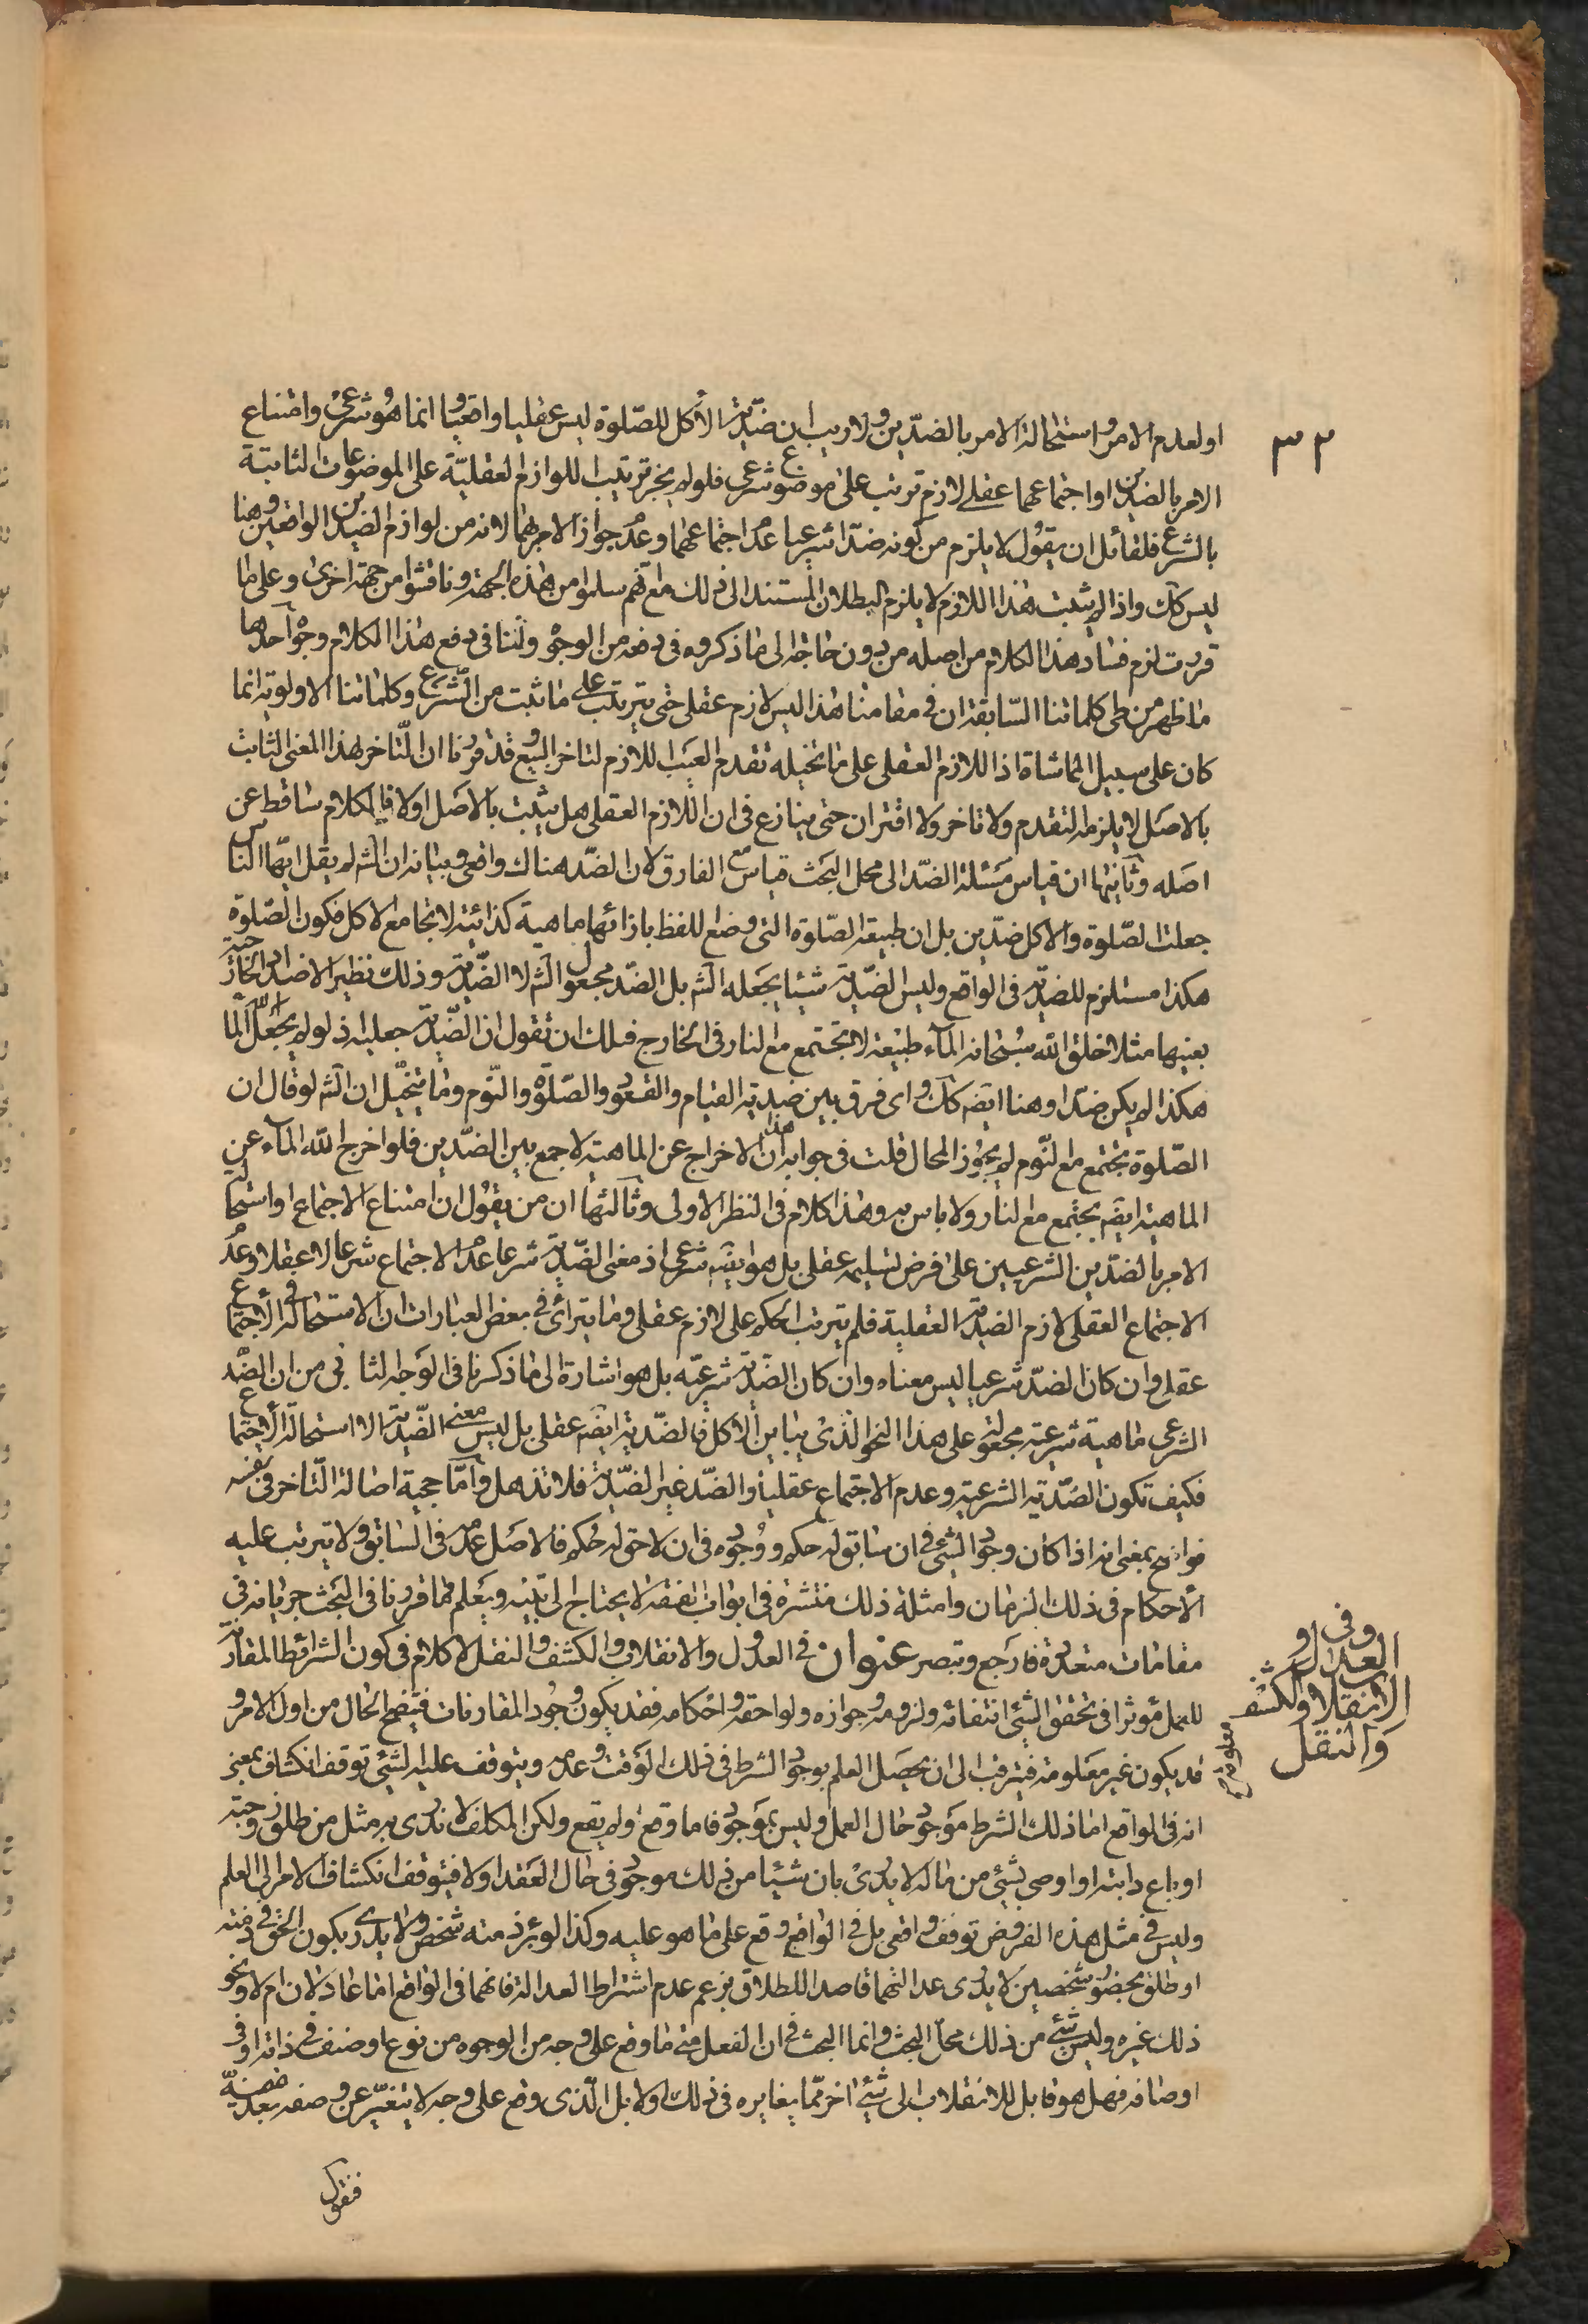 ٣٢
او لعدم الامر واستحالة الامر بالضدّين ولا ريب ان ضدّية الأكل للصّلوة ليس عقليا واقعيّا وانما هو شرعىّ وامتناع
الامر بالضدين او اجتماعهما عقلے لازم ترتب على موضوع شرعى فلو لم يجز ترتيب اللوازم العقليّة على الموضوعات الثابتة
بالشرع فلقائل ان يقول لا يلزم من كونه ضدّا شرعيا عدم اجتماعهما وعدم جواز الامر بهما لانه من لوازم الضدين الواقعين وهنا
ليس كك واذا لم يثبت هذا اللازم لا يلزم البطلان المستند الى ذلك مع انّهم سلموا من هذه الجهة وناقشوا من جهة اخرى وعلى ما
قررت لزم فساد هذا الكلام من اصله من دون حاجة الى ما ذكروه فى دفعه من الوجوه ولنا فى دفع هذا الكلام وجوه آحدها
ما ظهر من طى كلماتنا السّابقة ان فى مقامنا هذا ليس لازم عقلى حتى يترتب على ما ثبت من الشّرع وكلماتنا الاولوية انما
كان على سبيل المماشاة اذ اللازم العقلى على ما تخيله تقدم العيب اللازم لتاخر البيع وقد قررنا ان التّاخر بهذا المعنى الثابت
بالاصل لا يلزمه التقدم ولا تاخر ولا اقتران حتى ينازع فى ان اللازم العقلى هل يثبت بالاصل اولا فالكلام ساقط عن
اصله وثآنيها ان قياس مسئلة الضدّ الى محل البحث قياس مع الفارق لان الضدّ هناك واقعى وبيانه ان الشه لم يقل ايّها الناس
جعلت الصّلوة والاكل ضدّين بل ان طبيعة الصّلوة التى وضع اللفظ بازائها ماهية كذائية لا تجامع الاكل فكون الصّلوة
هكذا مستلزم للضديّة فى الواقع وليس الضدّية شيئا يجعله الشه بل الضدّ مجعول الشه لا الضّدية وذلك نظير الاضداد الخارجية
بعينها مثلا خلق الله سبحانه المآء طبيعة لا تجتمع مع النار فى الخارج فلك ان تقول ان الضّدية جعلية اذ لو لم يجعل الله المآء
هكذا لم يكن ضدّا وهنا ايضه كك واى فرق بين ضدية القيام والقعود والصّلوة والنّوم وما يتخيّل ان الشه لو قال ان
الصّلوة تجتمع مع النّوم لم يجوّز المحال قلت فى جوابه ان هذا لاخراج عن الماهية لا جمع بين الضّدين فلو اخرج الله المآء عن
الماهية ايضه يجتمع مع النار ولا باس به وهذا كلام فى النظر الاولى وثآلثها ان من يقول ان امتناع الاجتماع او استحالة
الامر بالضدّين الشرعيين على فرض تسليمه عقلى بل هو ايضه شرعى اذ معنى الضّدية شرعا عدم الاجتماع شرعا لا عقلا وعدم
الاجتماع العقلى لازم الضدية العقلية فلم يترتب الحكم على لازم عقلى وما يترائى فى بعض العبارات ان الاستحالة فى الأجتماع
عقلى وان كان الضدّ شرعيا ليس معناه وان كان الضّدية شرعيّه بل هو اشارة الى ما ذكرنا فى الوجه الثانى من ان الضّد
الشرعى ماهية شرعية مجعولة على هذا النحو الّذى يباين الأكل فالضّدية ايضه عقلى بل ليس معنى الضّدية الا استحالة الأجتماع
فكيف تكون الضّدية الشرعية وعدم الاجتماع عقليا والضّد غير الضّدية فلا تذهل وآمّا حجية اصالة التّاخر فى نفسه
فواضح بمعنى انه اذا كان وجود الشئ فى ان سابق له حكم ووجوده فى ان لاحق له حكم فالاصل عدمه فى السابق ولا يترتب عليه
الأحكام فى ذلك الزمان وامثلة ذلك منتشرة فى ابواب الفقه لا يحتاج الى تنبيه ويعلم مما قررنا فى البحث جريانه فى
مقامات متعددة فارجع وتبصر عنوان فى العدول والانقلاب والكشف والنقل لا كلام فى كون الشرائط المقارنة
للعمل مؤثرا فى تحقق الشئ انتفائه ولزومه وجوازه ولواحقه واحكامه فقد يكون وجود المقارنات فيتضح الحال من اول الامر و
قد يكون غير معلومة فيترقب الى ان يحصل العلم بوجود الشرط فى ذلك الوقت وعدمه ويتوقف عليه الشئ توقف انكشاف بمعنى
انه فى الواقع اما ذلك الشرط موجود حال العمل وليس بموجود فاما وقع ولم يقع ولكن المكلف لا يدرى به مثل من طلق زوجته
او باع دابته او اوصى بشئ من ماله لا يدرى بان شيئا من ذلك موجود فى حال العقد اولا فيتوقف انكشاف الامر الى العلم
وليس فى مثل هذه الفروض توقف واقعى بل فى الواقع وقع على ما هو عليه وكذا لو برئ ذمته شخص ولا يدرى بكون الحق فى ذمته
او طلق بحضور شخصين لا يدرى عدالتهما قاصدا للطلاق بزعم عدم اشتراط العدالة فانهما فى الواقع اما عادلان ام لا ونحو
ذلك غيره وليس شئ من ذلك محلّ البحث وانما البحث فى ان الفعل متى ما وقع على وجه من الوجوه من نوع او صنف فى ذاته او فى
اوصافه فهل هو قابل للانقلاب الى شئ اخر ممّا يغايره فى ذلك اولا بل الّذى وقع على وجه لا يتغيّر عن وصفه بعد مضيّه
فنقول
وفى
العدول و
الانقلاب والكشف
والنقل
معلومة